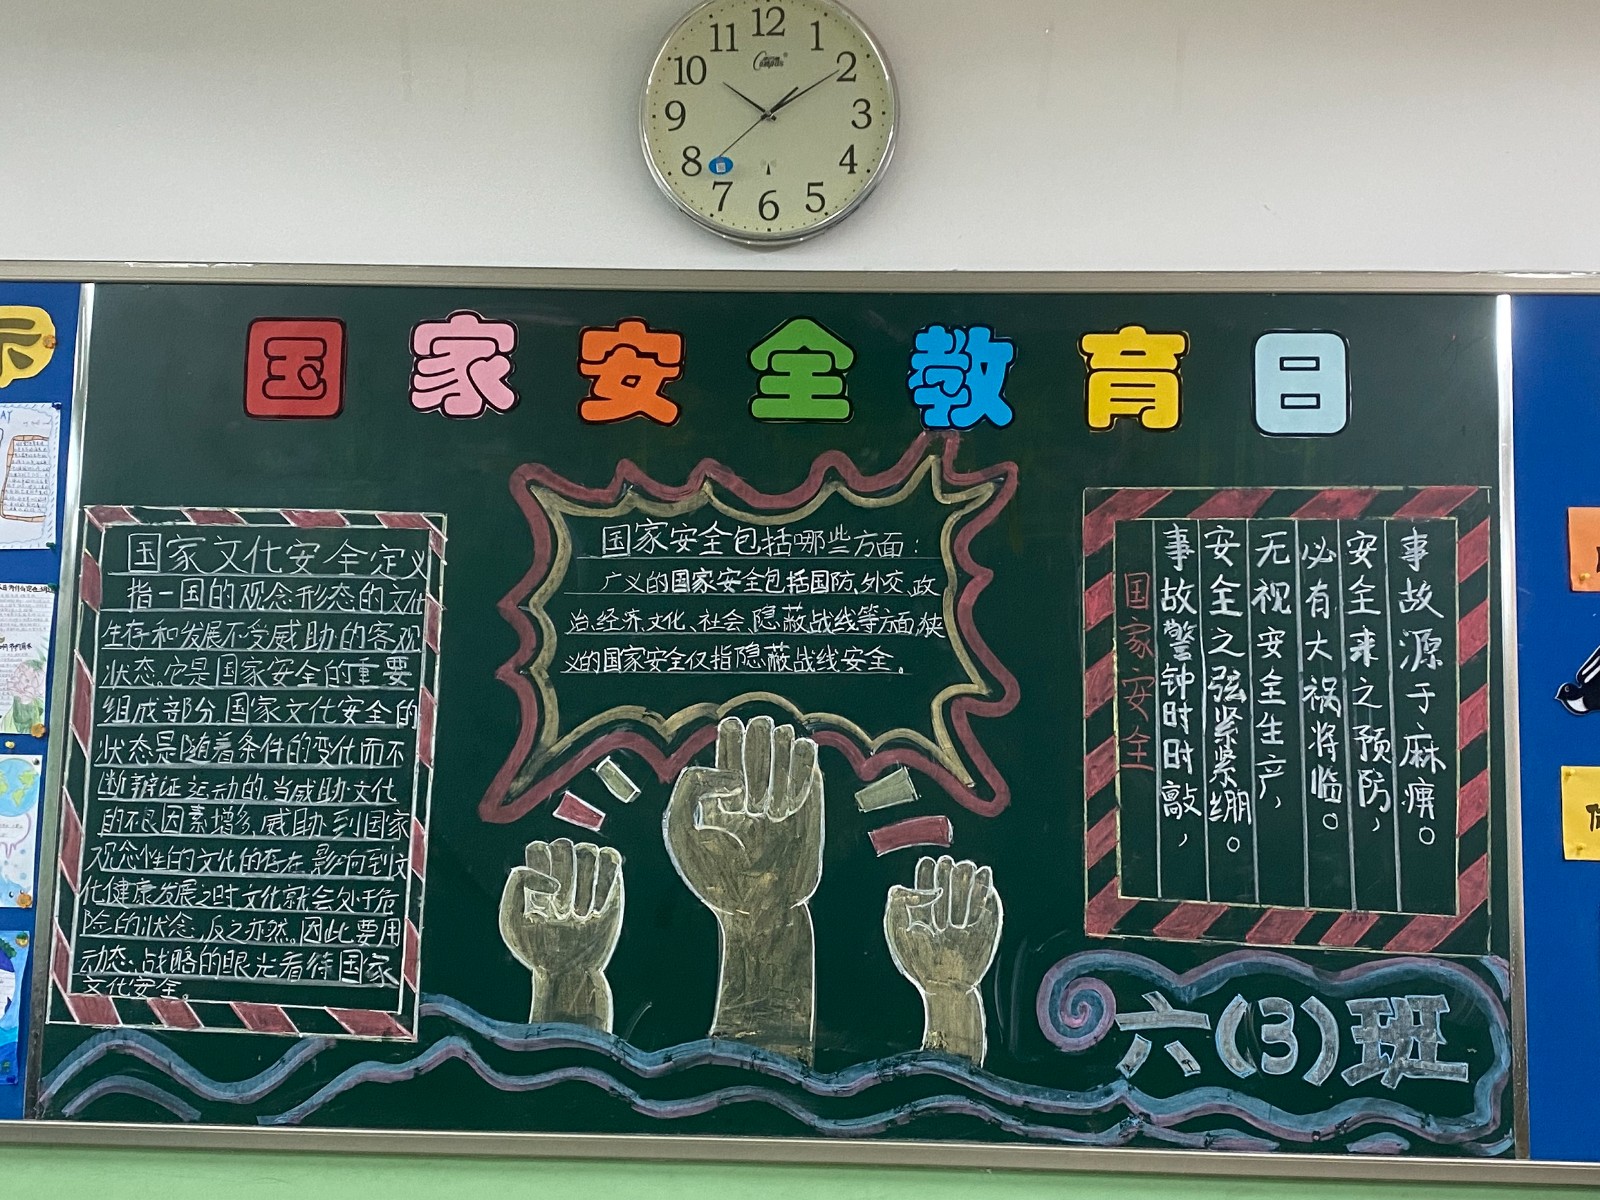 11 12 1
10 2
9 3
8 4
7 6 5
国家安全教育日
国家文化安全定义
指一国的观念形态的文化
生存和发展不受威胁的客观
状态。它是国家安全的重要
组成部分。国家文化安全的
状态是随着条件的变化而不
断辩证运动的。当威胁文化
的不良因素增多,威胁到国家
观念性的文化的存在,影响到文
化健康发展之时文化就会处于危
险的状态,反之亦然。因此要用
动态、战略的眼光看待国家
文化安全。
国家安全包括哪些方面:
广义的国家安全包括国防、外交、政
治、经济、文化、社会、隐蔽战线等方面,狭
义的国家安全仅指隐蔽战线安全。
事故源于麻痹。
安全来之预防,
必有大祸将临。
无视安全生产,
安全之弦紧紧绷。
事故警钟时时敲,
国家安全
六(3)班